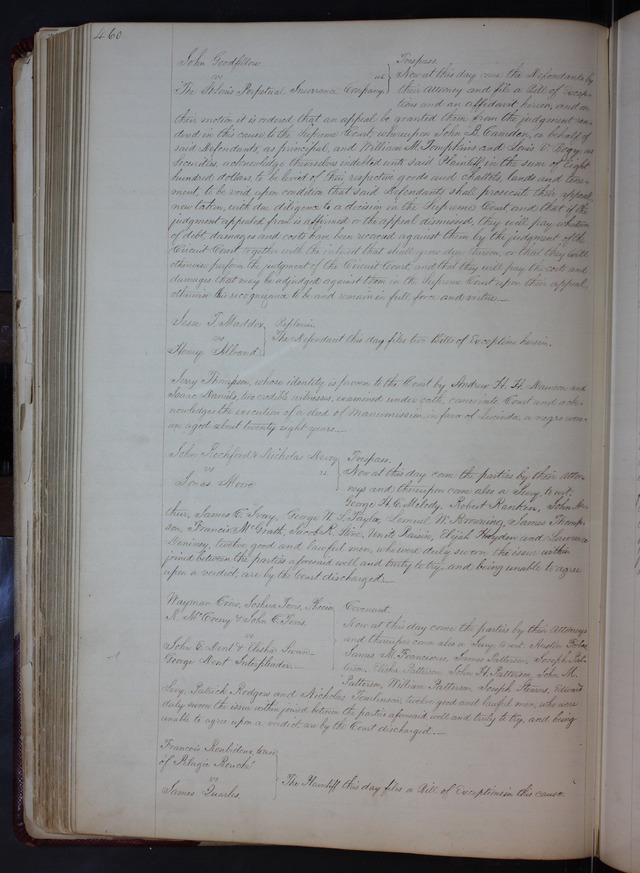 460
John Goodfellow Trespass.
vs Now at this day come the Defendants by
The St Louis Perpetual Insurance Company their Attorney and file a Bill of Excep-
tions and an affidavit herein, and on
their motion it is ordered that an appeal be granted them from the judgment ren-
dered in this cause to the Supreme Court, whereupon John B. Camden, on behalf of
said Defendants, as principal, and William M. Tompkins and Louis V. Bogy, as
Securities, acknowledge themselves indebted unto said Plaintiff in the sum of Eight
hundred dollars, to be levied of their respective goods and chattels, lands and tene-
ments, to be void upon condition that said Defendants shall prosecute their appeal
now taken, with due diligence to a decision in the Supreme Court, and that if the
judgment appealed from is affirmed or the appeal dismissed, they will pay whatever
of debt, damages and costs have been recovered against them by the judgment of the
Circuit Court together with the interest that shall grow due thereon, or that they will
otherwise perform the judgment of the Circuit Court, and that they will pay the costs and
damages that may be adjudged against them in the Supreme Court upon their appeal,
otherwise this recognizance to be and remain in full force and virtue.
Jesse T. Maddox Replevin.
vs The Defendant this day files two Bills of Exceptions herein.
Henry
Jerry Thompson, whose identity is proven to the Court by Andrew H. H. Dawson and
Isaac Daniels, two credible witnesses, examined under oath, came into Court and ack-
nowledges the execution of a deed of Manumission in favor of Lucinda, a negro wom-
an aged about twenty eight years.
John Techford & Nicholas Trespass.
vs Now at this day come the parties by their Attor-
Jonas Moore neys and thereupon came also a Jury, to wit,
George H. C. Melody, Robert Ranken, John
James C. Ivory, George W. L. Taylor, Lemuel W. Browning, James Thomp-
son, Francis McGrath, Jacob R. Stine, Elijah Hayden and Lawrence
twelve good and lawful men, who were duly sworn the issue within
joined between the parties aforesaid well and truly to try, and being unable to agree
upon a verdict, are by the Court discharged.
Wayman Crow, Joshua Tevis, Covenant.
R. McCreery & John C. Tevis. Now at this day come the parties by their Attorneys
vs and thereupon came also a Jury, to wit,
John C. Dent & Elisha James M. Franciscus, James Patterson, Joseph Pat-
George Dent Interpleader. terson, Elisha Patterson, John H. Patterson, John M.
Patterson, William Patterson, Joseph Stearns, Edward
Levy, Patrick Rodgers and Nicholas Tomlinson, twelve good and lawful men, who were
duly sworn the issue within joined between the parties aforesaid well and truly to try, and being
unable to agree upon a verdict are by the Court discharged.
Francois
of Pelagie
vs The Plaintiff this day files a Bill of Exceptions in this cause
James Quarles.